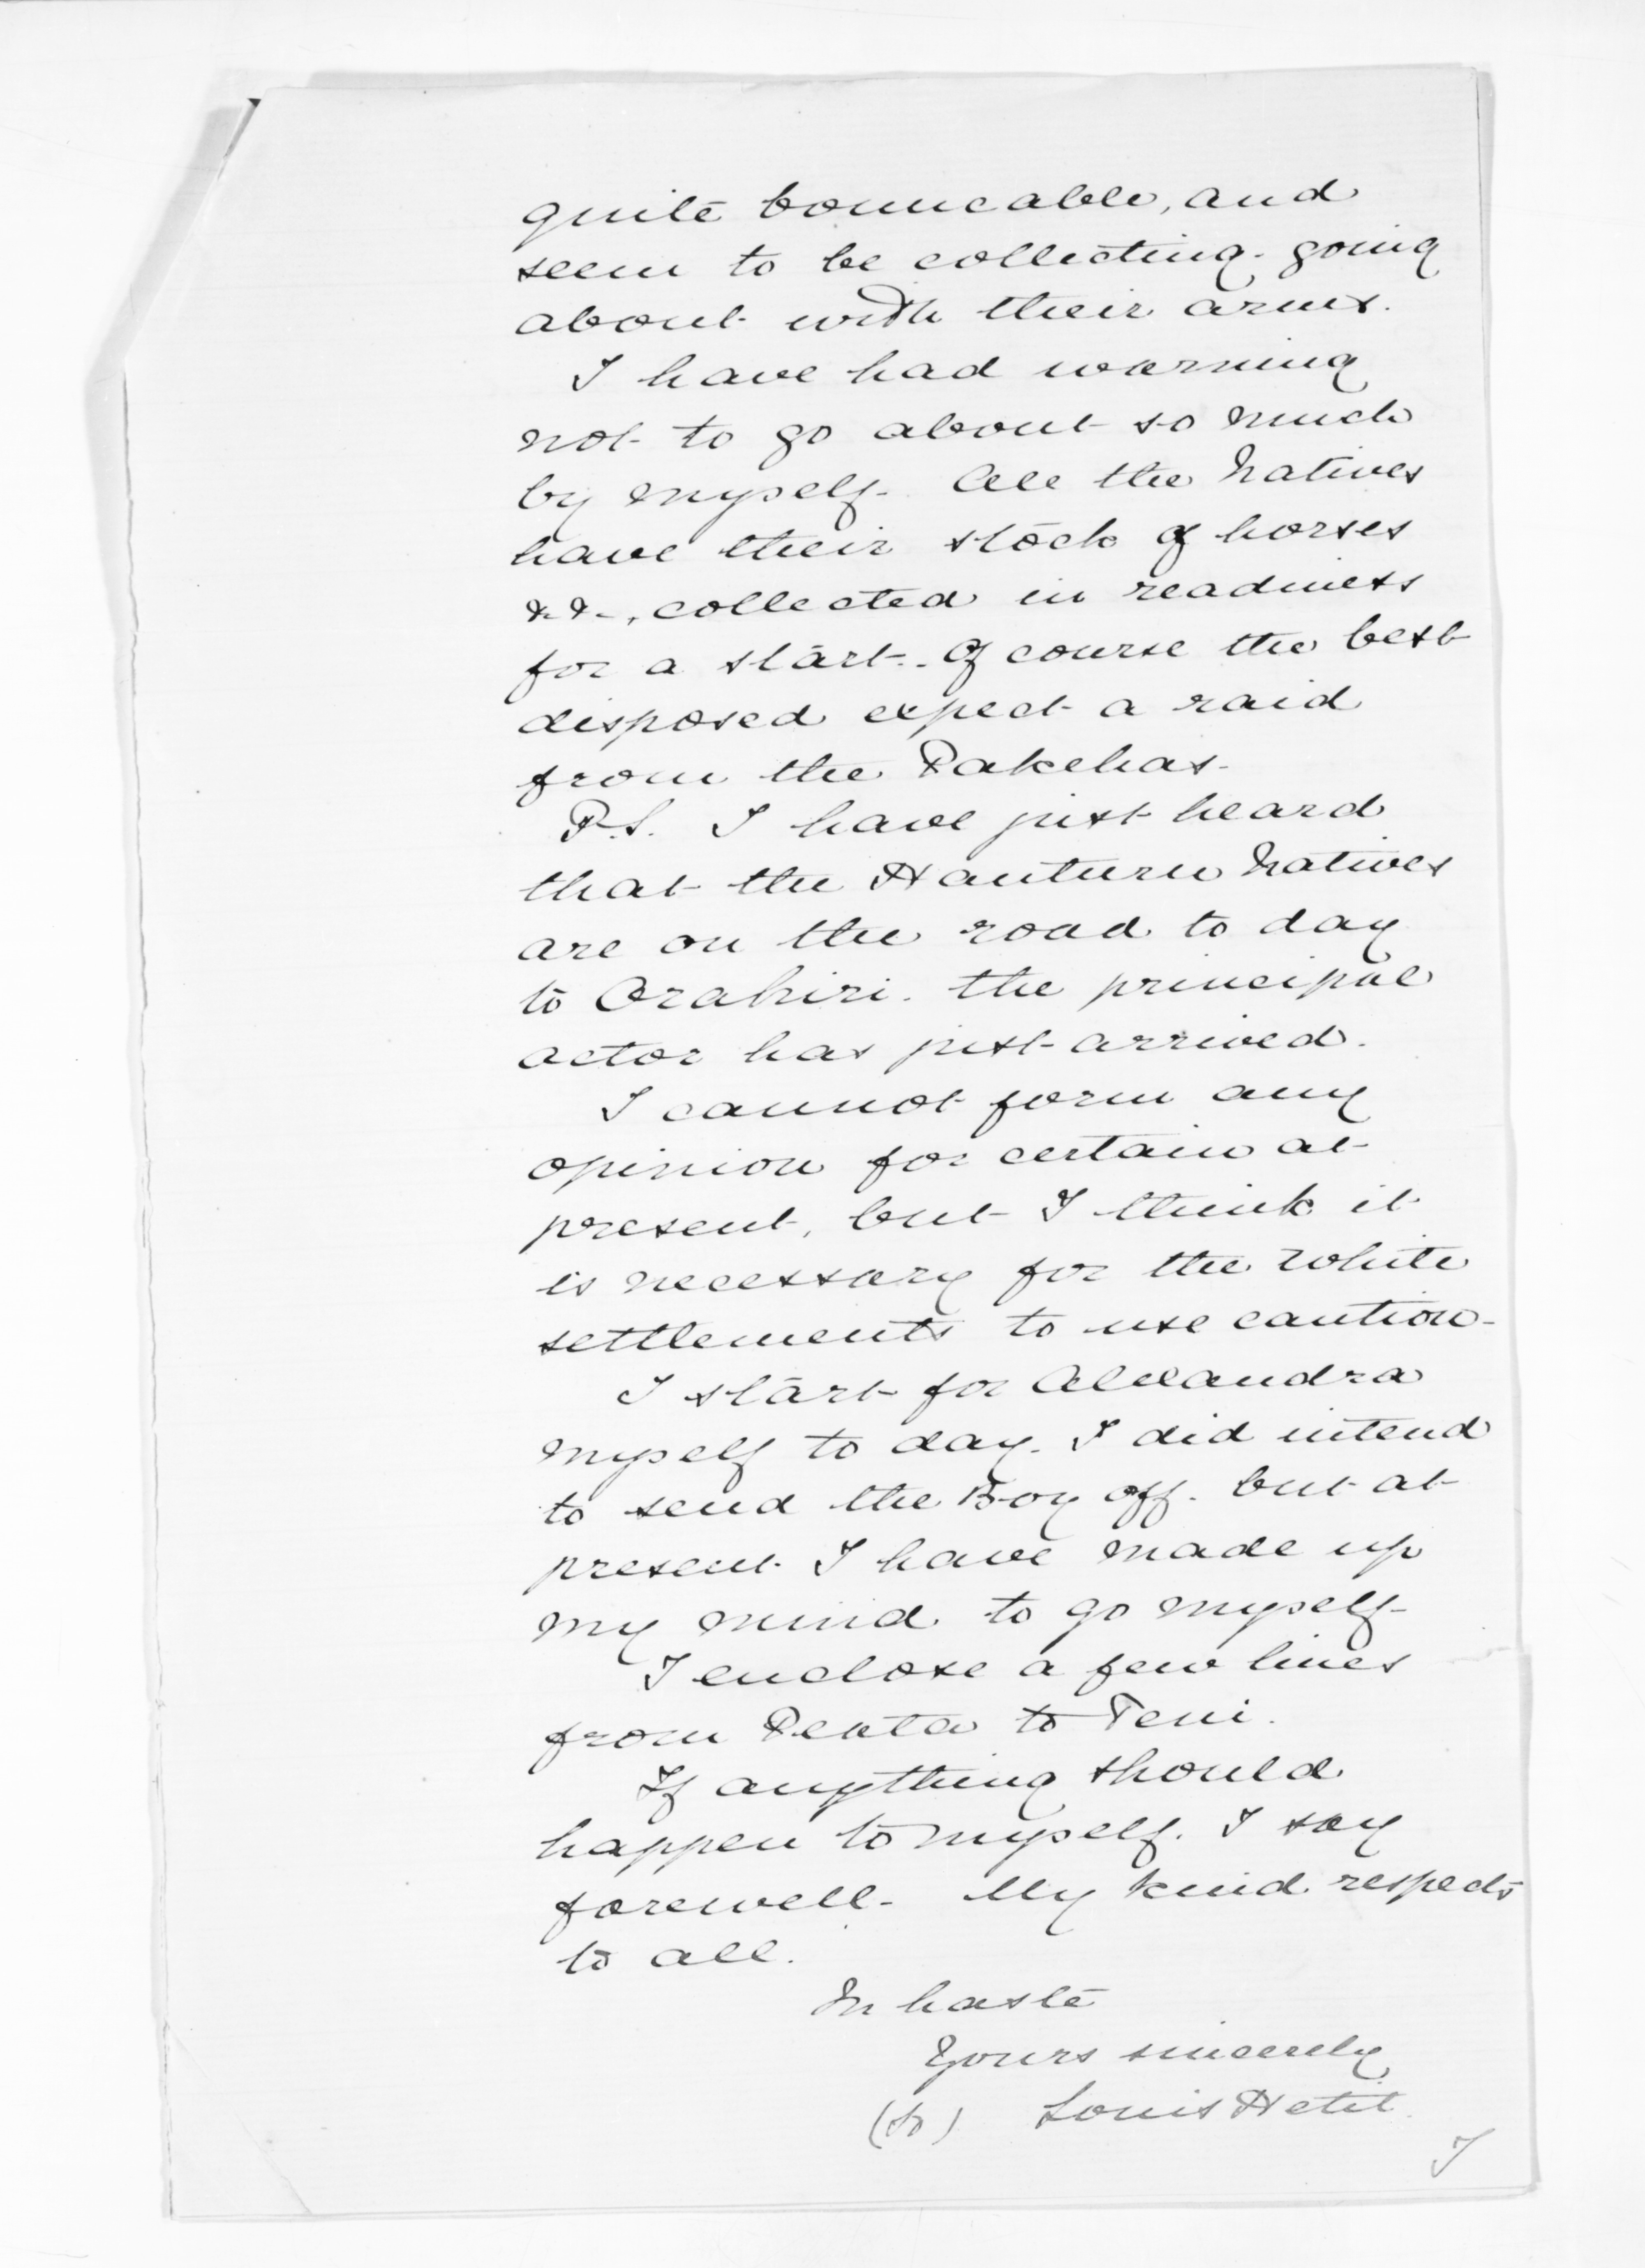 quite bounceable, and
seem to be collecting. going
about with their arms.
I have had warning
not to go about so much
by myself. All the Natives
have their stock of horses
&c., collected in readiness
for a start. Of course the best
disposed expect a raid
from the Pakehas.
P.S. I have just heard
that the Hauturu Natives
are on the road to day
to Orahiri. the principal
actor has just arrived.
I cannot form any
opinion for certain at
present, but I think it
is necessary for the white
settlements to use caution.
I start for Alexandra
myself to day. I did intend
to send the Boy off. but at
present I have made up
my mind to go myself.
I enclose a few lines
from to
If anything should
happen to myself. I say
farewell. My kind respects
to all.
In haste
Yours sincerely
Louis Hetit.
I